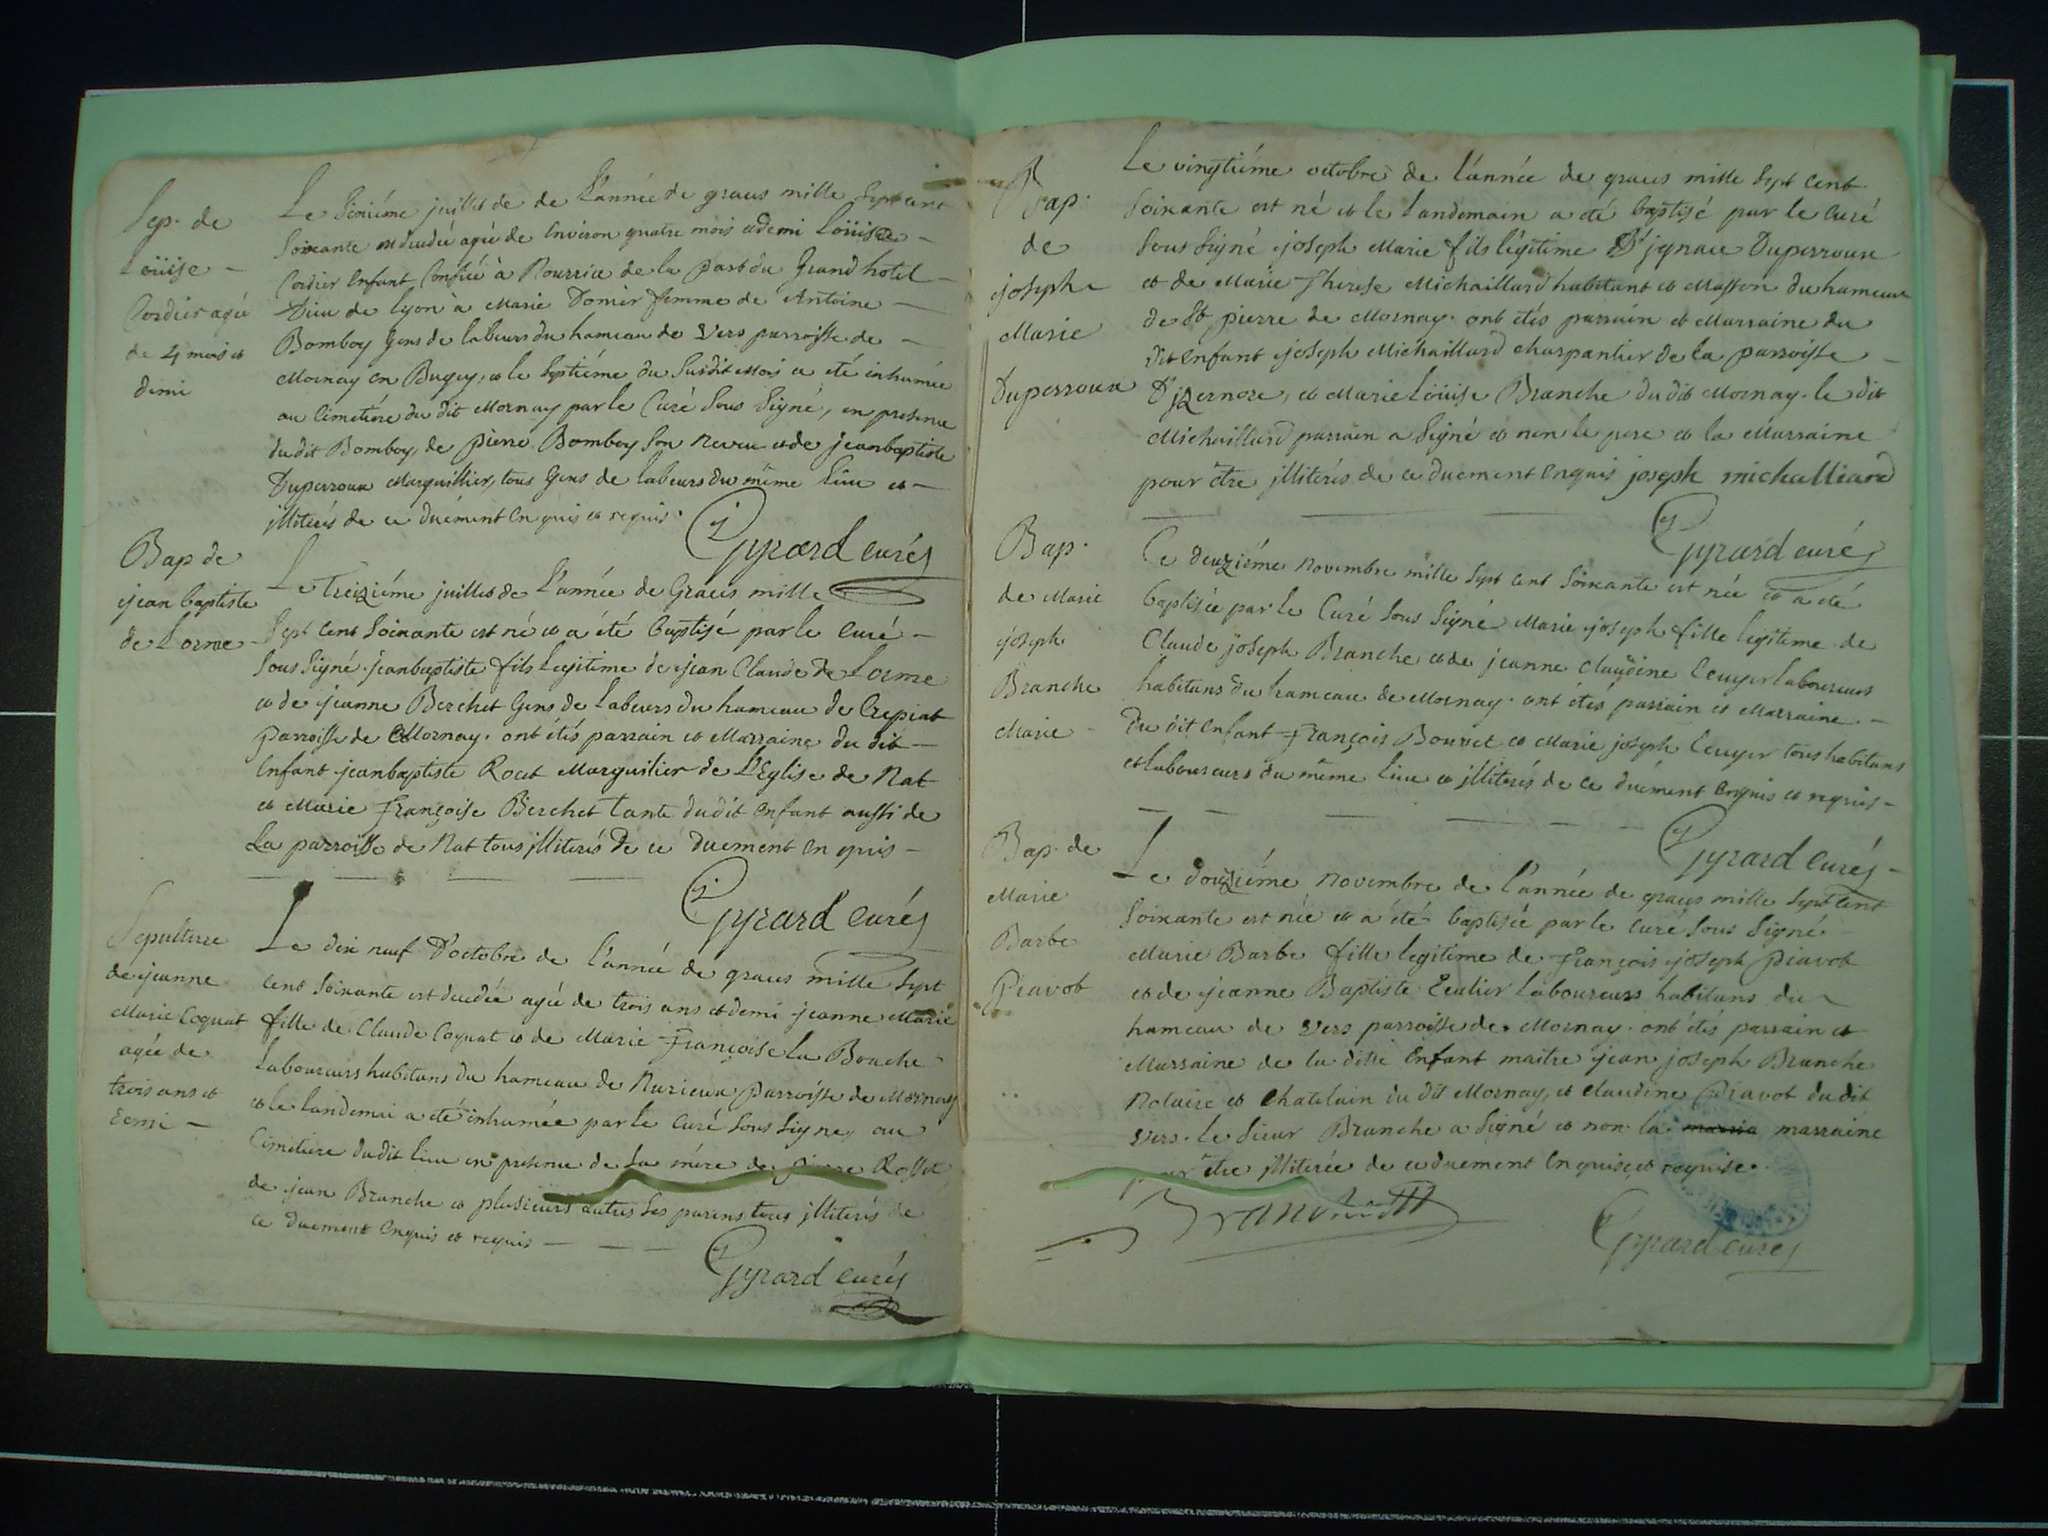 Sep. de
Loüise
Cordier agée
de 4 mois et
demi
Le Sixiéme juillet de de L'année de graces mille Sept cent
Soixante est decedée agée de environ quatre mois et demi Loüise
Cordier enfant Confiée à Nourrice de la part du Grand hotel
Dieu de Lyon à Marie Domier femme de Antoine
Bomboy Gens de labeurs du hameau de Vers parroisse de
Mornay en Bugey, et le Septiéme du Susdit Mois a eté inhumée
au Cimetiére du dit Mornay par le Curé Sous Signé, en presence
du dit Bomboy, de pierre Bomboy Son neveu et de jeanbaptiste
Duperroux Marguillier, tous Gens de labeurs du même Lieu et
jlliterés de ce duëment enquis et requis.
Gyrard curé
Bap de
jean baptiste
de Lorme
Le Treiziéme juillet de L'année de Graces mille
Sept cent Soixante est né et a été baptisé par le Curé
Sous Signé jeanbaptiste fils Legitime de jean Claude de Lorme
et de jeanne Berchet Gens de Labeurs du hameau de Crepiat
Parroisse de Mornay. ont étés parrain et Marraine du dit
enfant jeanbaptiste Rout Marguilier de L'Eglise de Nat
et Marie françoise Berchet tante dudit enfant aussi de
La parroisse de Nat tous jlliterés de ce duement enquis
Gyrard Curé
Sepulture
de jeanne
Marie Coquat
agée de
trois ans et
demi
Le dix neuf d'octobre de l'année de graces mille Sept
Cent Soixante est decedée agée de trois ans et demi jeanne Marie
fille de Claude Coquat et de Marie françoise La Bouche
Laboureurs habitans du hameau de Nurieux Parroisse de Mornay
et le landemai a eté inhumée par le Curé Sous Signé, au
Cimetiere dudit lieu en presence de Sa mére de pierre Rosset
de jean Branche et plusieurs autres Ses parens tous jlliterés de
ce duement enquis et requis
Gyrard curé
Bap.
de
joseph
Marie
Duperroux
Le vingtiéme octobre de l'année de graces mille Sept Cent
Soixante est né et le landemain a eté baptisé par le Curé
Sous Signé joseph Marie fils legitime D'jgnace Duperroux
et de Marie Therese Michaillard habitant et Masson du hameau
de St pierre de Mornay. ont étés parrain et Marraine du
dit enfant joseph Michaillard charpantier de la parroisse
D'jzernore, et Marie Loüise Branche du dit Mornay. le dit
Michaillard parrain a Signé et non le pere et la Marraine
pour être jlliterés de ce duement enquis joseph michalliard
Gyrard curé
Bap.
de Marie
joseph
Branche
Marie
Ce deuxiéme Novembre mille Sept cent Soixante est née et a eté
baptisée par le Curé Sous Signé Marie joseph fille legitime de
Claude joseph Branche et de jeanne Claudine Ecuyer laboureurs
habitans du hameau de Mornay. ont étés parrain et Marraine
du dit enfant François Bouvet et Marie joseph Ecuyer tous habitans
et laboureurs du même lieu et jlliterés de ce duément enquis et requis
Gyrard curé
Bap. de
Marie
Barbe
Piavot
Le douziéme Novembre de l'année de graces mille Sept Cent
Soixante est née et a été baptisée par le Curé Sous Signé
Marie Barbe fille legitime de François joseph Piavot
et de jeanne Baptiste Ecalier Laboureurs habitans du
hameau de Vers parroisse de Mornay. ont étés parrain et
Marraine de la ditte Enfant maitre jean joseph Branche
Notaire et Chatelain du dit Mornay, et Claudine Piavot du dit
Vers. le Sieur Branche a Signé et non la marraine
être jlliterée de ce duement enquise et requise.
Branche
Gyrard curé